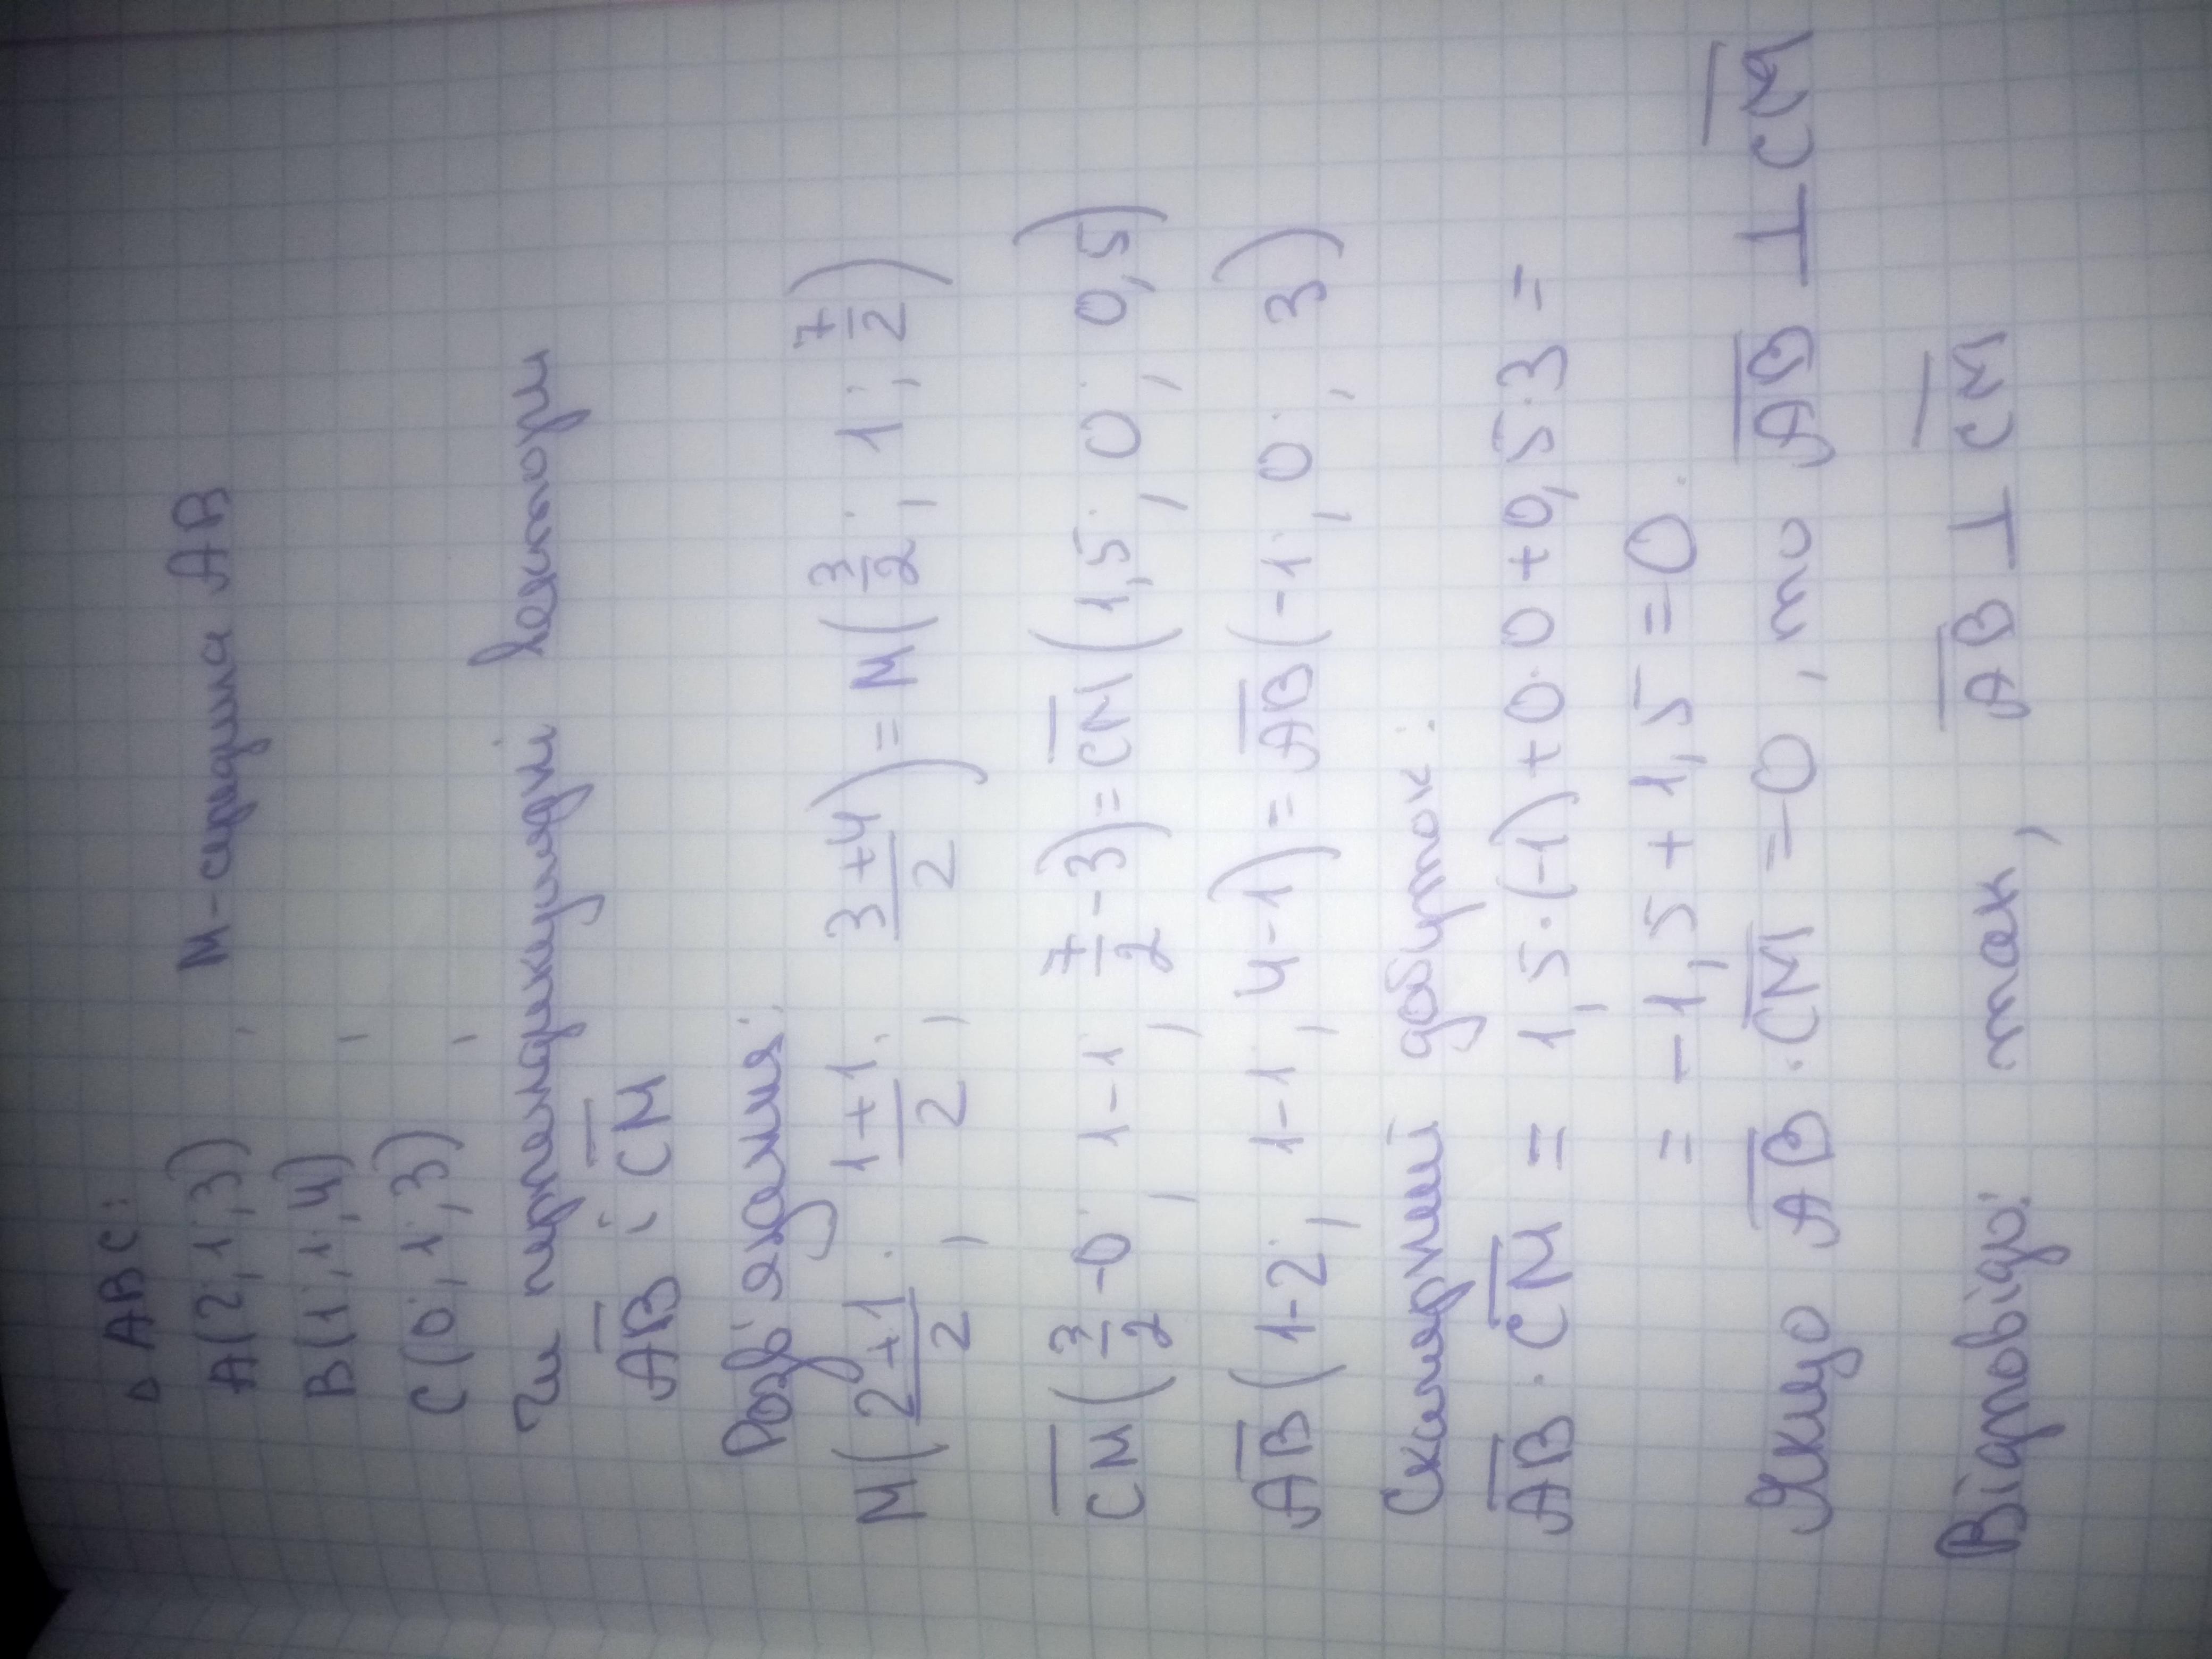 △ ABC:
A(2; 1; 3), M-середина AB
B(1; 1; 4),
C(0; 1; 3),
Чи перпендикулярні вектори
A̅B̅ і C̅M̅
Розв'язання:
M(2+1/2; 1+1/2; 3+4/2) = M(3/2; 1; 7/2)
C̅M̅(3/2-0; 1-1; 7/2-3) = C̅M̅(1,5; 0; 0,5)
A̅B̅(1-2; 1-1; 4-1) = A̅B̅(-1; 0; 3)
Скалярний добуток:
A̅B̅ · C̅M̅ = 1,5·(-1)+0·0+0,5·3=
= -1,5+1,5=0.
Якщо A̅B̅·C̅M̅=0, то A̅B̅ ⊥ C̅M̅
Відповідь: так, A̅B̅ ⊥ C̅M̅